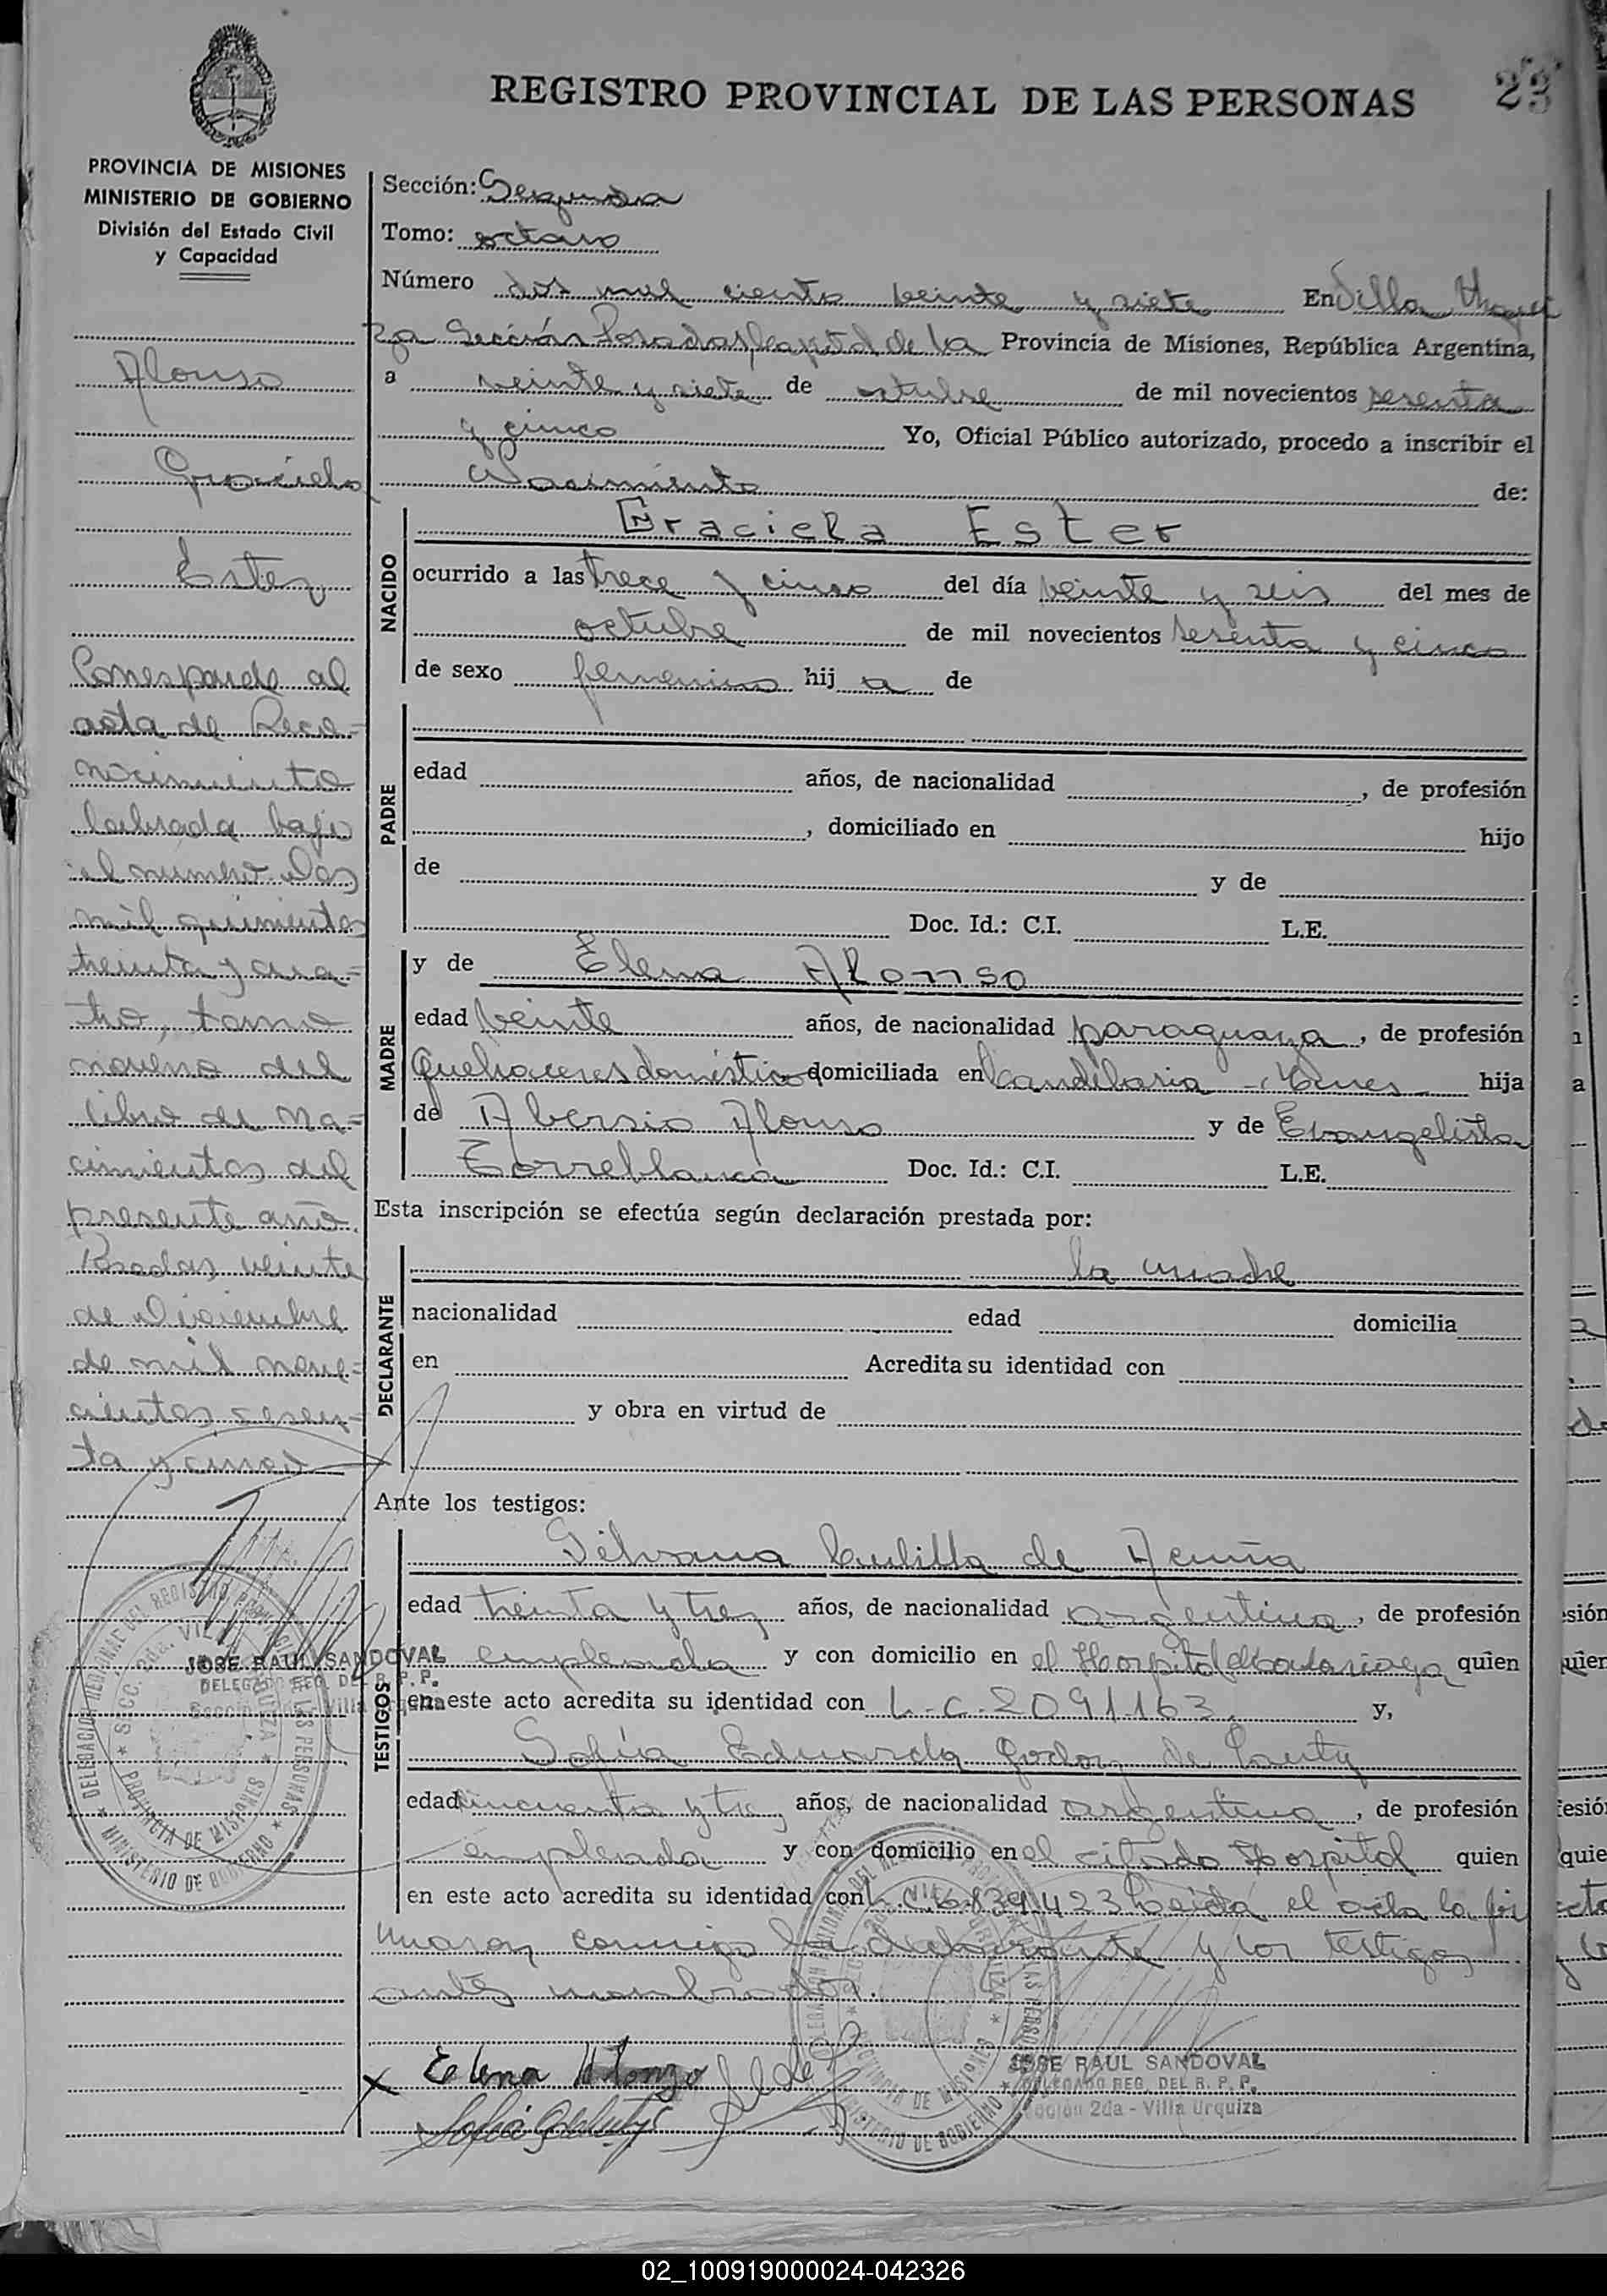 REGISTRO PROVINCIAL DE LAS PERSONAS
23
PROVINCIA DE MISIONES
MINISTERIO DE GOBIERNO
División del Estado Civil
y Capacidad
Alonso
Graciela
Ester
Corresponde al
acta de Reco-
nocimiento
labrada bajo
el numero dos
mil quinientos
treinta y cua-
tro, tomo
noveno del
libro de Na-
cimientos del
presente año.
Posadas veinte
de Diciembre
de mil nove-
cientos sesen-
ta y cinco
JOSE RAUL SANDOVAL
DELEGADO REG. DEL R. P. P.
Sección 2da - Villa Urquiza
DELEGACION REGIONAL DEL REGISTRO PROVINCIAL DE LAS PERSONAS
SECC. 2da. VILLA URQUIZA
PROVINCIA DE MISIONES
MINISTERIO DE GOBIERNO
Sección: Segunda
Tomo: octavo
Número dos mil ciento veinte y siete En Villa
2a Sección Posadas, capital de la Provincia de Misiones, República Argentina,
a veinte y siete de octubre de mil novecientos sesenta
y cinco Yo, Oficial Público autorizado, procedo a inscribir el
Nacimiento de:
NACIDO
Graciela Ester
ocurrido a las trece y cinco del día veinte y seis del mes de
octubre de mil novecientos sesenta y cinco
de sexo femenino hij a de
PADRE
edad años, de nacionalidad , de profesión
, domiciliado en hijo
de y de
Doc. Id.: C.I. L.E.
MADRE
y de Elena Alonso
edad veinte años, de nacionalidad paraguaya, de profesión
Quehaceres domésticos domiciliada en Candelaria - Mnes hija
de Albersio Alonso y de Evangelista
Torreblanca Doc. Id.: C.I. L.E.
Esta inscripción se efectúa según declaración prestada por:
DECLARANTE
la madre
nacionalidad edad domicilia
en Acredita su identidad con
y obra en virtud de
Ante los testigos:
TESTIGOS
Silvana de Acuña
edad treinta y tres años, de nacionalidad argentina, de profesión
empleada y con domicilio en el Hospital Madariaga quien
en este acto acredita su identidad con L.C. 2091163, y,
Sofía Eduarda Godoy de
edad cincuenta y tres años, de nacionalidad argentina, de profesión
empleada y con domicilio en el citado Hospital quien
en este acto acredita su identidad con L.C. 6.839.423 Leida el acta la fir
maron conmigo la declarante y los testigos
antes nombrados.
x Elena Alonzo
JOSE RAUL SANDOVAL
DELEGADO REG. DEL R. P. P.
Sección 2da - Villa Urquiza
02_100919000024-042326